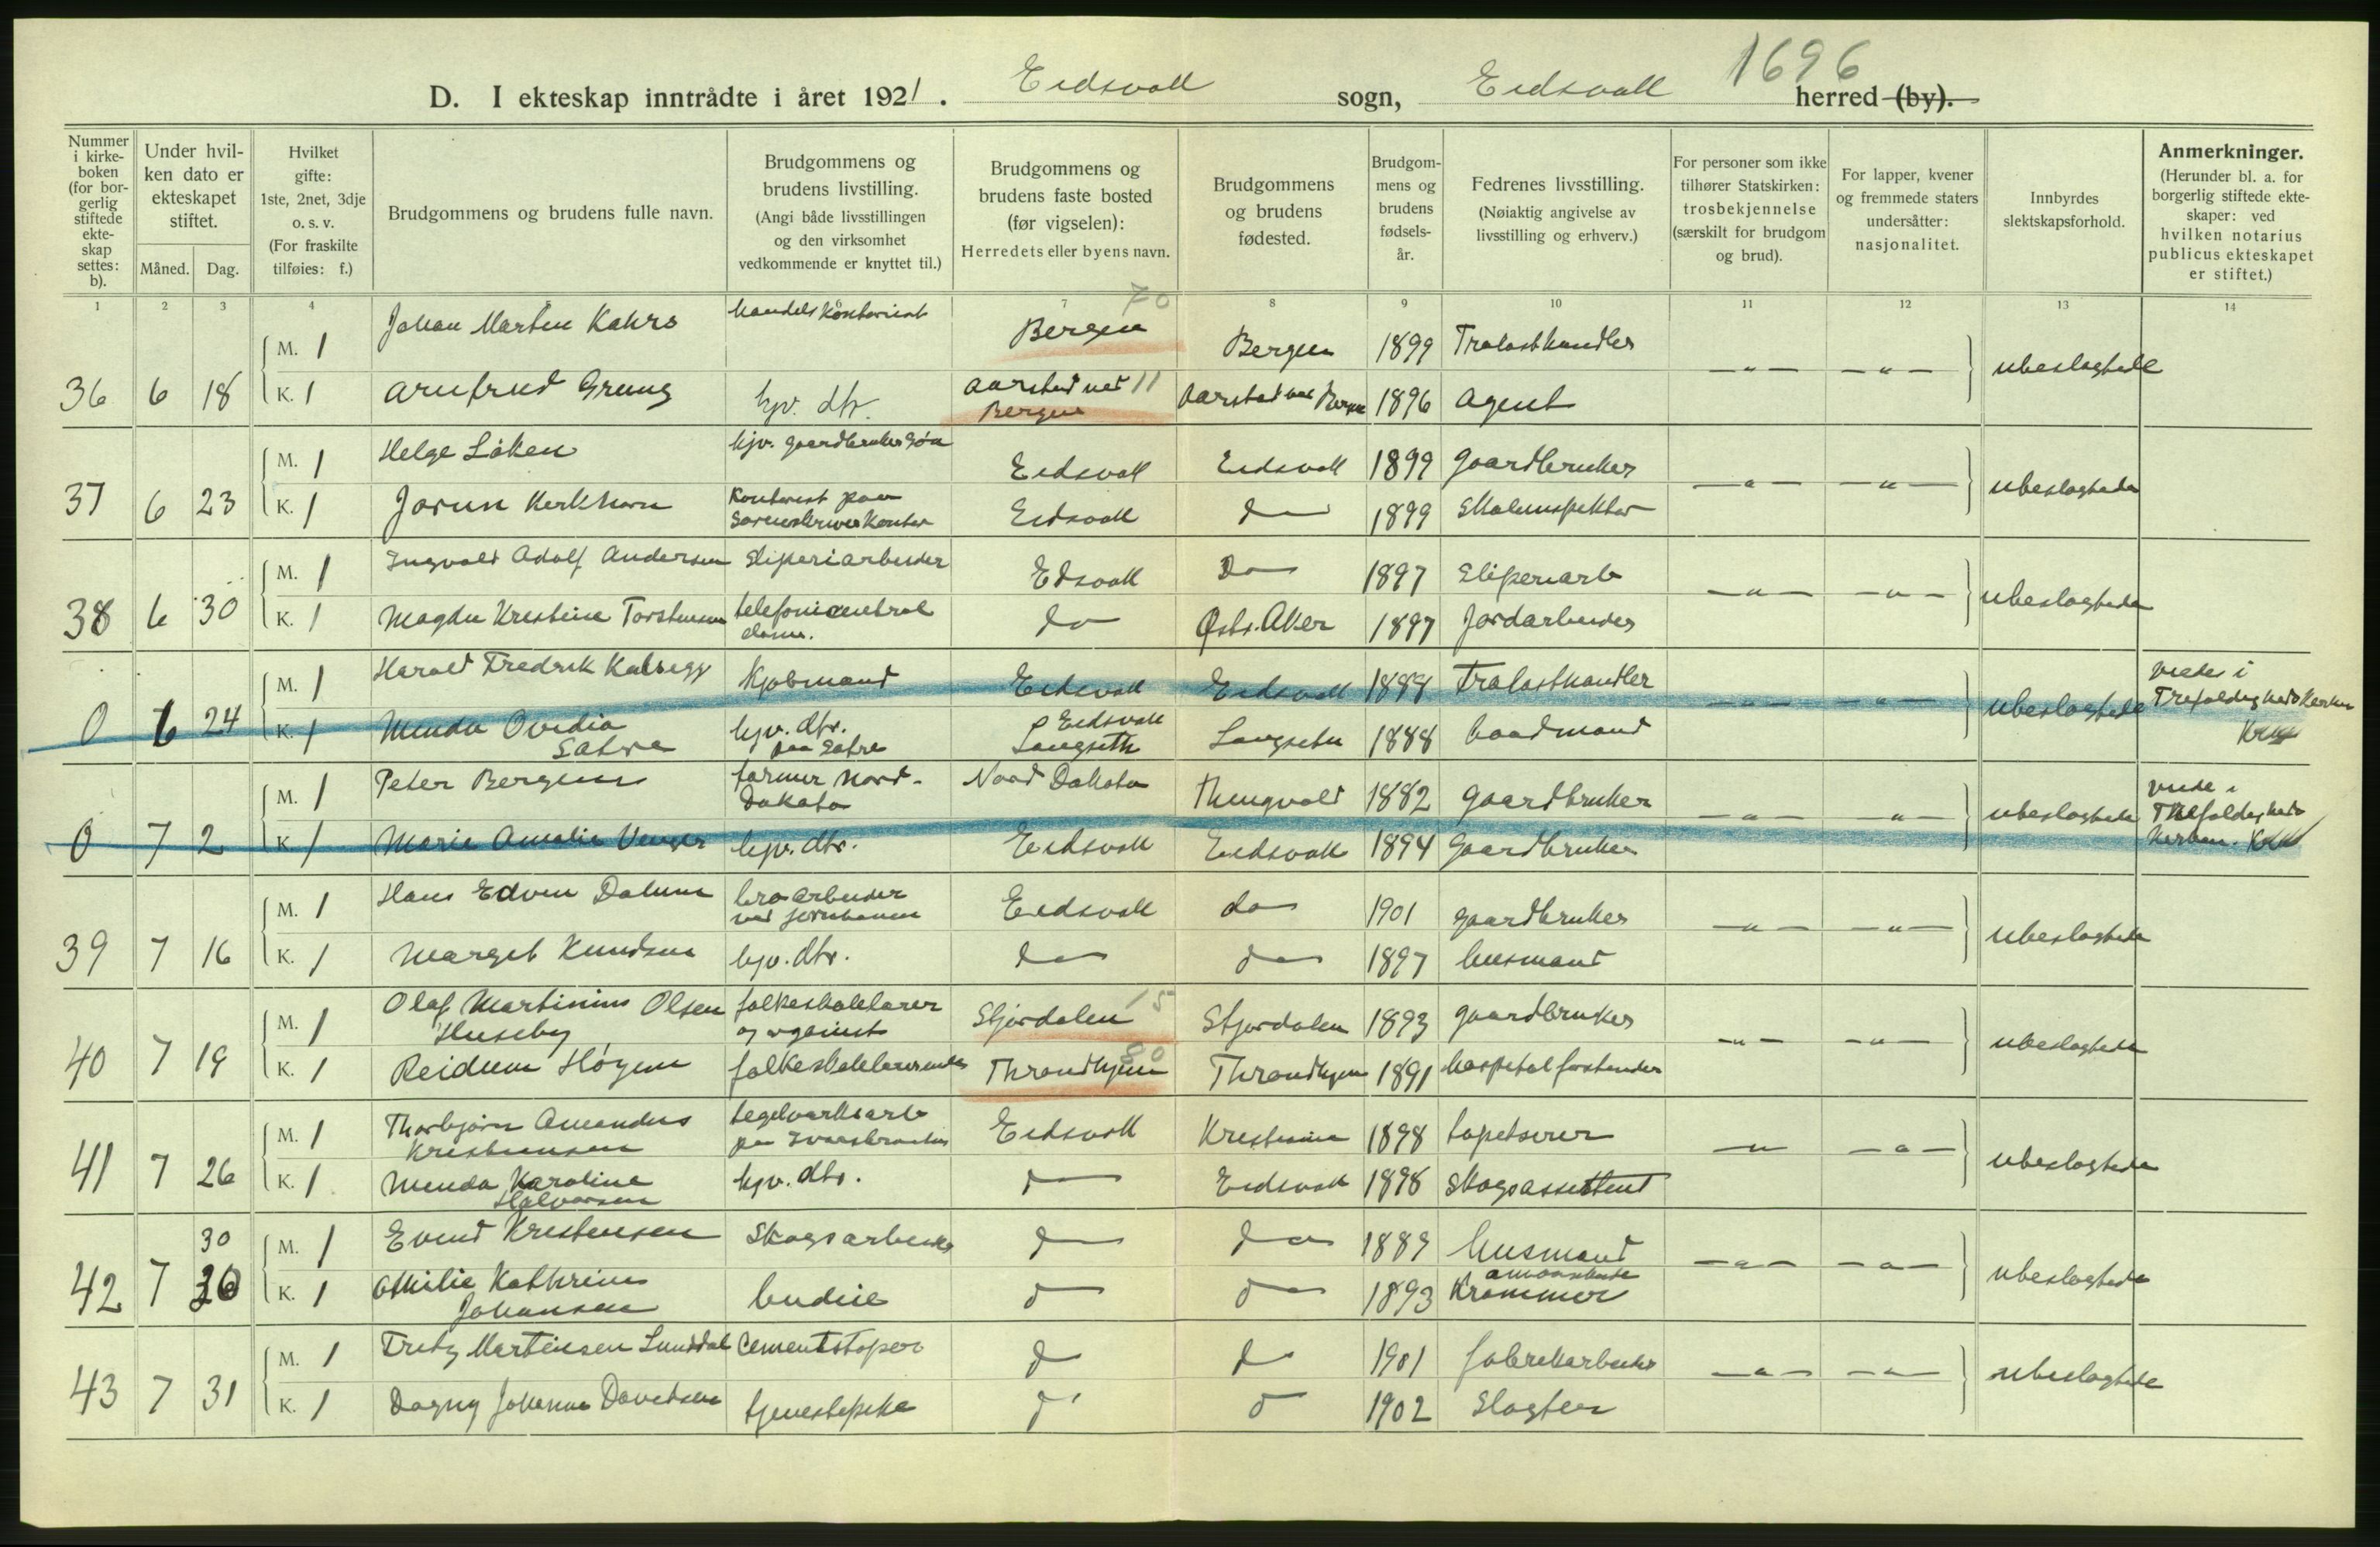 1696
D. I ekteskap inntrådte i året 1921. Eidsvoll sogn, Eidsvoll herred (by).
Nummer i kirke- boken (for bor- gerlig stiftede ekte- skap settes: b).
Under hvil- ken dato er ekteskapet stiftet.
Måned. Dag.
Hvilket gifte: 1ste, 2net, 3dje o. s. v. (For fraskilte tilføies: f.)
Brudgommens og brudens fulle navn.
Brudgommens og brudens livstilling. (Angi både livsstillingen og den virksomhet vedkommende er knyttet til.)
Brudgommens og brudens faste bosted (før vigselen): Herredets eller byens navn.
Brudgommens og brudens fødested.
Brudgom- mens og brudens fødsels- år.
Fedrenes livsstilling. (Nøiaktig angivelse av livsstilling og erhverv.)
For personer som ikke tilhører Statskirken: trosbekjennelse (særskilt for brudgom og brud).
For lapper, kvener og fremmede staters undersåtter: nasjonalitet.
Innbyrdes slektskapsforhold.
Anmerkninger. (Herunder bl. a. for borgerlig stiftede ekte- skaper: ved hvilken notarius publicus ekteskapet er stiftet.)
1 2 3 4 7 8 9 10 11 12 13 14
70
M. 1 Johan Martin Kahrs handels kontorist Bergen Bergen 1899 Trælasthandler
36 6 18 — " — — " — ubeslegtede
K. 1 Arnfrid Grung hjv. dtr. Aarstad ved 11 Bergen Aarstad ved Bergen 1896 Agent
M. 1 Helge Løken hjv. gaardbruker søn Eidsvoll Eidsvoll 1899 gaardbruker
37 6 23 — " — — " — ubeslegtede
K. 1 Jorun Kerkhorn Kontorist paa Sorenskriverkontor Eidsvoll do 1899 Skoleinspektør
M. 1 Ingvald Adolf Andersen Sliperiarbeider Eidsvoll Do 1897 Sliperiarb
38 6 30 — " — — " — ubeslegtede
K. 1 Magda Kristine Torstensen telefoncentral do Østr. Aker 1897 Jordarbeider
M. 1 Harald Fredrik Kalsegg Kjøbmand Eidsvoll Eidsvoll 1889 Trælasthandler
0 6 24 — " — — " — ubeslegtede viede i Trefoldighedskirken
K. 1 Minda Ovidia Sætre hjv. dtr. paa Sætre Eidsvoll Langseth Langseth 1888 baadmand
M. 1 Peter Bergum farmer Nord- Dakota Nord Dakota Thingvold 1882 gaardbruker
0 7 2 — " — — " — ubeslegtede viede i Trefoldigheds kirken.
K. 1 Marie Amalie Venger hjv. dtr. Eidsvoll Eidsvoll 1894 Gaardbruker
M. 1 Hans Edvin Dalum broarbeider ved jernbanen Eidsvoll do 1901 gaardbruker
39 7 16 — " — — " — ubeslegtede
K. 1 Margit Knudsen hjv. dtr. do do 1897 husmand
M. 1 Olaf Martinius Olsen Huseby folkeskolelærer og organist Stjørdalen 15 Stjørdalen 1893 gaardbruker
40 7 19 — " — — " — ubeslegtede
K. 1 Reidun Høyem folkeskolelærerinde Throndhjem 80 Throndhjem 1891 hospital forstander
M. 1 Thorbjørn Amandus Kristiansen teglverksarb Eidsvoll Kristiania 1898 tapetserer
41 7 26 — " — — " — ubeslegtede
K. 1 Minda Karoline Halvorsen hjv. dtr. do Eidsvoll 1898 Skogsassistent
M. 1 Eivind Kristensen Skogsarbeider do do 1889 husmand
42 7 30 30 — " — — " — ubeslegtede
K. 1 Othilie Kathrine Johansen budeie do do 1893 Krammer
M. 1 Fritz Martinsen Sunddal Cementstøper do do 1901 fabrikarbeider
43 7 31 — " — — " — ubeslegtede
K. 1 Dagny Johanne Davidsen tjenestepike do do 1902 Slagter